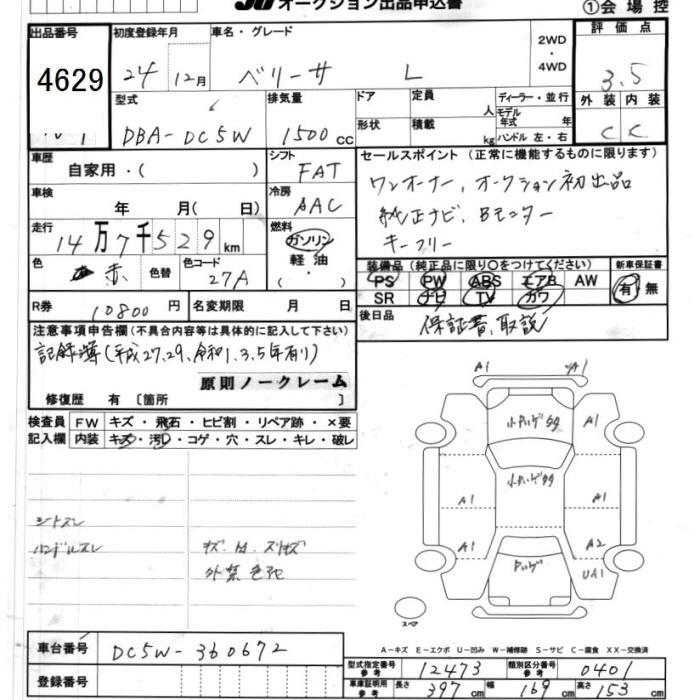 JU オークション出品申込書
①会場控
出品番号
4629
初度登録年月
24年12月
車名・グレード
ベリーサ L
2WD
・
4WD
評価点
3.5
外装 内装
C C
型式
DBA-DC5W
排気量
1500 CC
ドア
形状
定員 人
積載 kg
ディーラー・並行
モデル年式 年
ハンドル 左・右
車歴
自家用・( )
シフト
FAT
車検
年 月( 日)
冷房
AAC
走行
14万7千529km
燃料
ガソリン
軽油
・
色
赤
色替
色コード
27A
R券
10800円
名変期限 月 日
セールスポイント (正常に機能するものに限ります)
ワンオーナー、オークション初出品
純正ナビ、Bモニター
キーフリー
装備品 (純正品に限り○をつけてください)
新車保証書
PS PW ABS エアB AW
SR ナビ TV カワ
有・無
後日品
保証書、取説
注意事項申告欄 (不具合内容等は具体的に記入して下さい)
記録簿(平成27,29、令和1,3,5年有り)
原則ノークレーム
修復歴 有 〔箇所 〕
検査員記入欄
FW キズ・飛石・ヒビ割・リペア跡・×要
内装 キズ・汚レ・コゲ・穴・スレ・キレ・破レ
シートスレ
ハンドルスレ
キズ、凹、スリキズ
A1 A1
小キズ、ゲタタ A1
小キズ、ゲタタ
A1 A1
A1 A2
UA1
スペア
A-キズ E-エクボ U-凹み W-補修跡 S-サビ C-腐食 XX-交換済
車台番号
DC5W-360672
登録番号
型式指定番号 参考
12473
類別区分番号 参考
0401
車庫証明用 参考
長さ 397 cm
幅 169 cm
高さ 153 cm